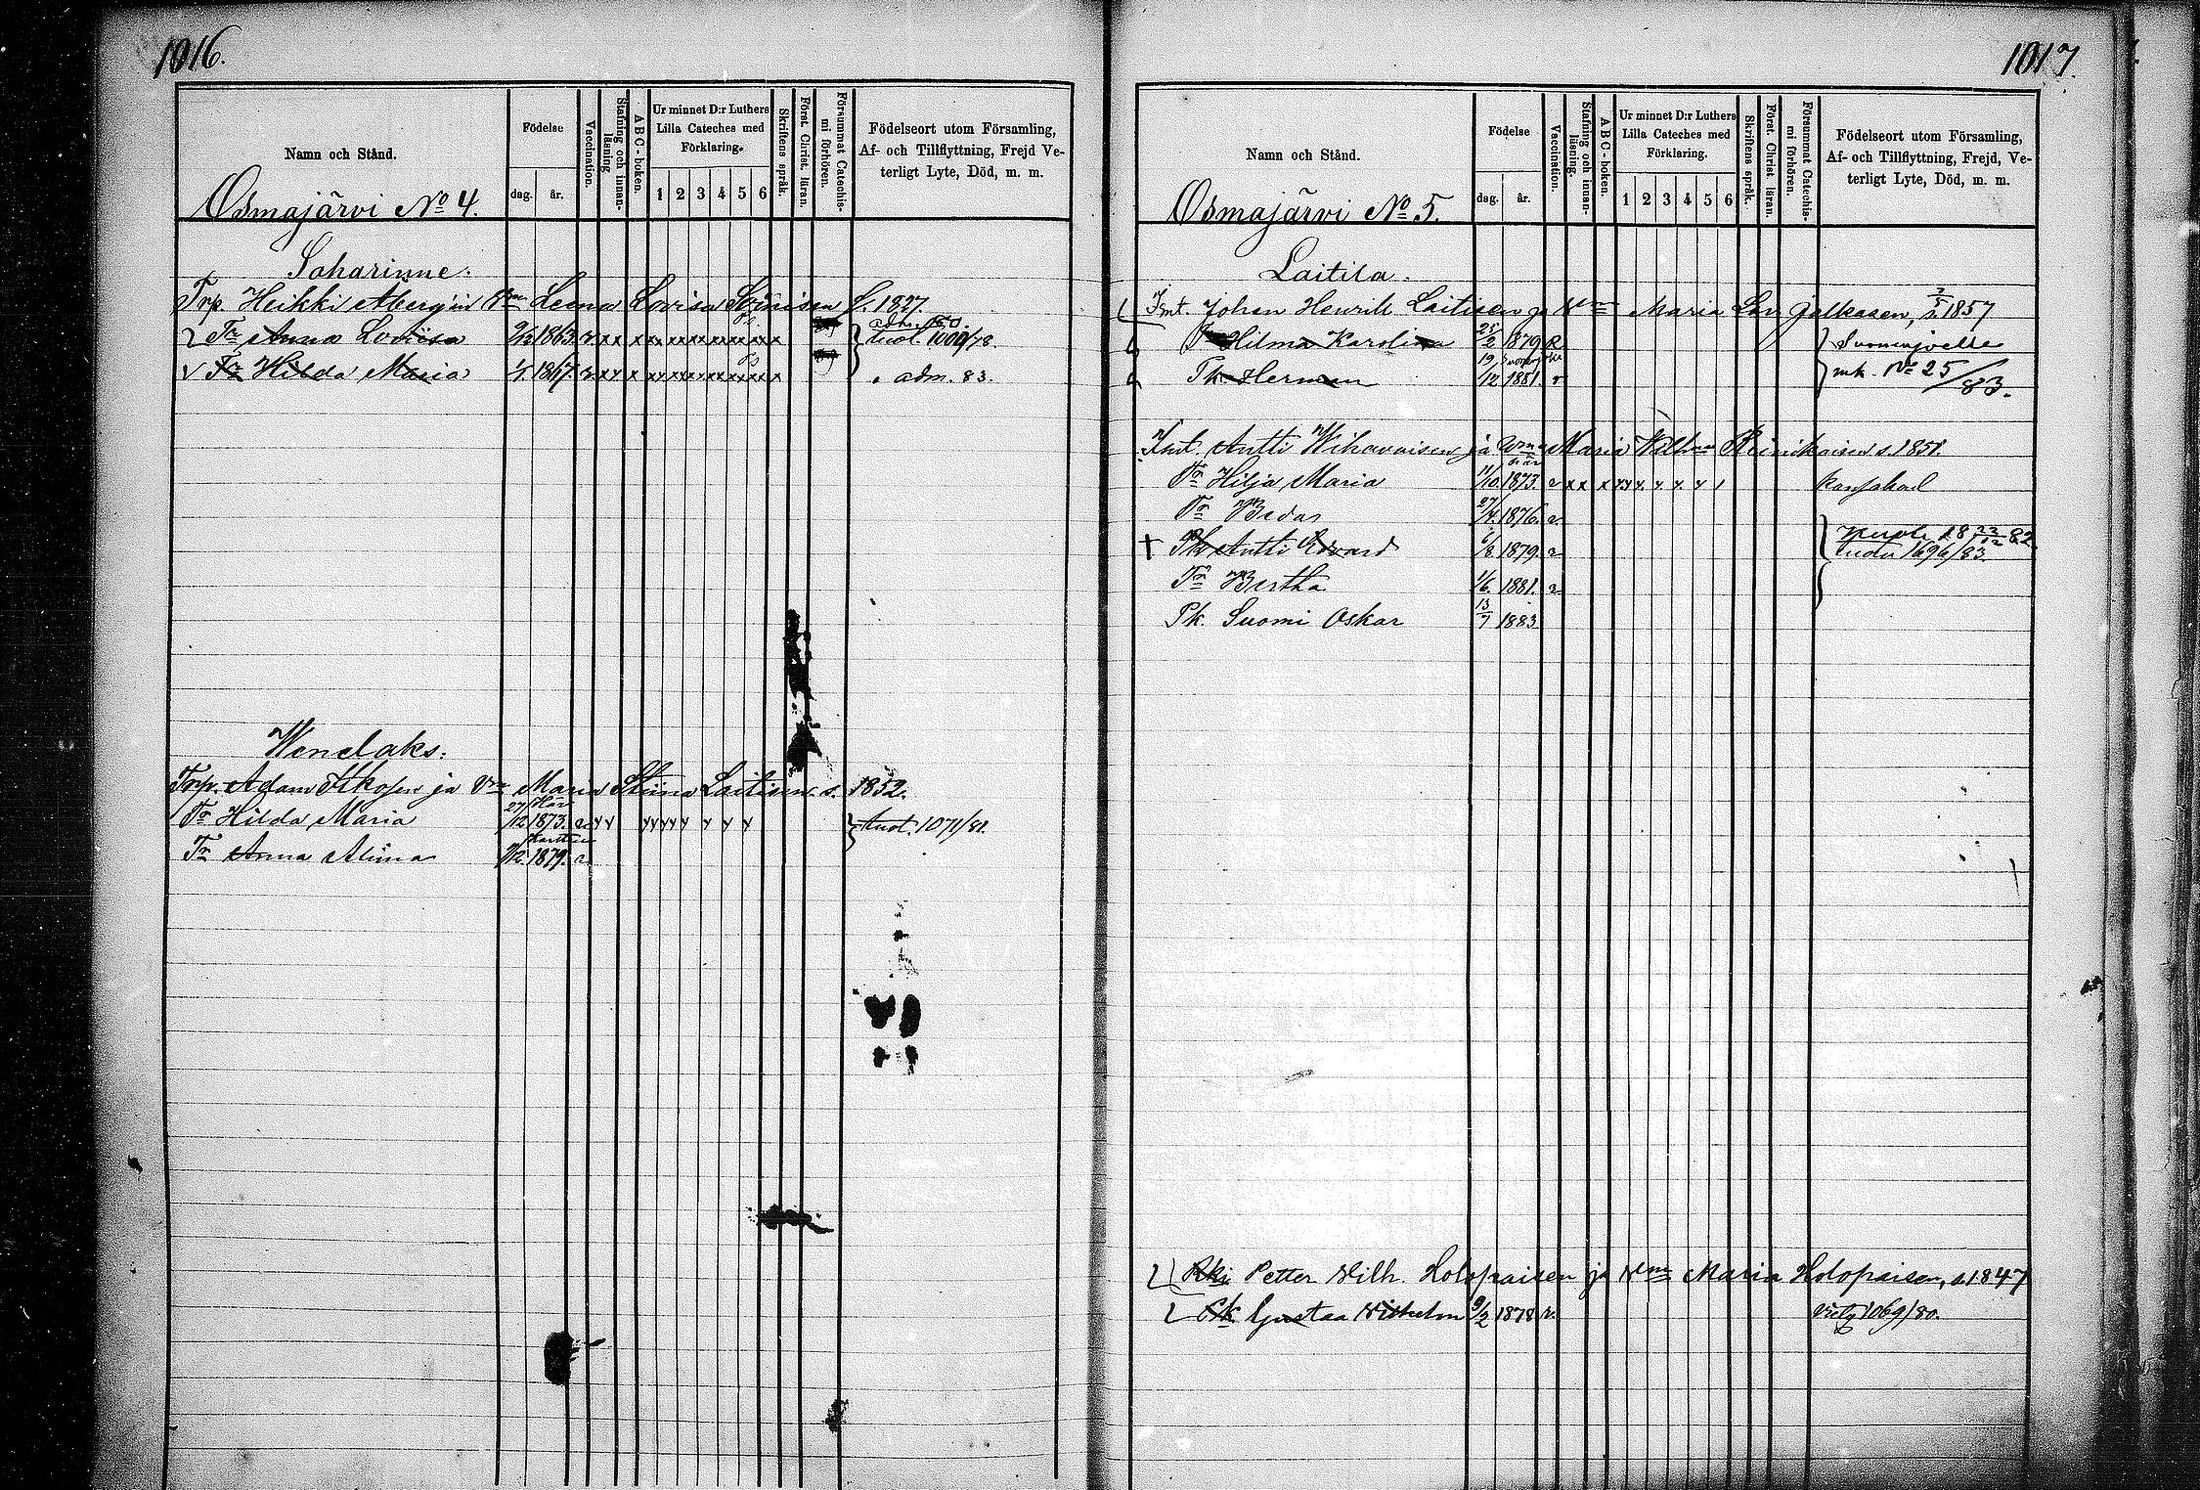 1016.
Namn och Stånd.
Födelse
dag. år.
Vaccination.
Stafning och innanläsning
ABC-boken.
Ur minnet D:r Luthers
Lilla Cateches med
Förklaring.
1 2 3 4 5 6
Skriftens språk.
Förståt. Christ. läran.
Försummat Catechismi förhören.
Födelseort utom Församling,
Af- och Tillflyttning, Frejd Ve-
terligt Lyte, Död, m. m.
Osmajärvi No 4.
Saharinne.
Trp. Heikki Aberg'in Vmo Leena Lovisa s. 1827.
Tr Anna Lovisa 1863. r x x x x x x x x x x x tuot. 1000/78.
Tr Hilda Maria 1/1. 1867. r x x x x x x x x x x x adm. 83.
Wendaks.
Trp. Adam ja Vmo Maria Stiina Laitisen s. 1852.
Tr Hilda Maria 27/12 1873. tuot. 1071/81.
Tr Anna Alina 1879.
1017.
Namn och Stånd.
Födelse
dag. år.
Vaccination.
Stafning och innanläsning.
ABC-boken.
Ur minnet D:r Luthers
Lilla Cateches med
Förklaring.
1 2 3 4 5 6
Skriftens språk.
Förståt. Christ. läran.
Försummat Catechismi förhören.
Födelseort utom Församling,
Af- och Tillflyttning, Frejd, Ve-
terligt Lyte, Död, m. m.
Osmajärvi No 5.
Laitila.
Johan Henrik Laitisen ja Vmo Maria Lov Jalkasen, s. 1857
Hilma Karolina 25/2 1879 R Suonenjoelle
Pk Herman 19/12 1881. r mk. No 25/83.
Antti Wihavaisen ja Vmo Maria Reinikaisen s. 1851.
Tr Hilja Maria 11/10. 1873. kansakoul
Tr 27/4. 1876.
+ Pk Antti Edvard 6/8. 1879. 1696/83.
Tr Bertha 1/6. 1881.
Pk. Suomi Oskar 13/7 1883.
Petter Wilh. Holopaisen ja Vmo Maria Holopaisen, s. 1847
Pk. Gustaa Wilhelm 9/2 1878 r. 1069/80.